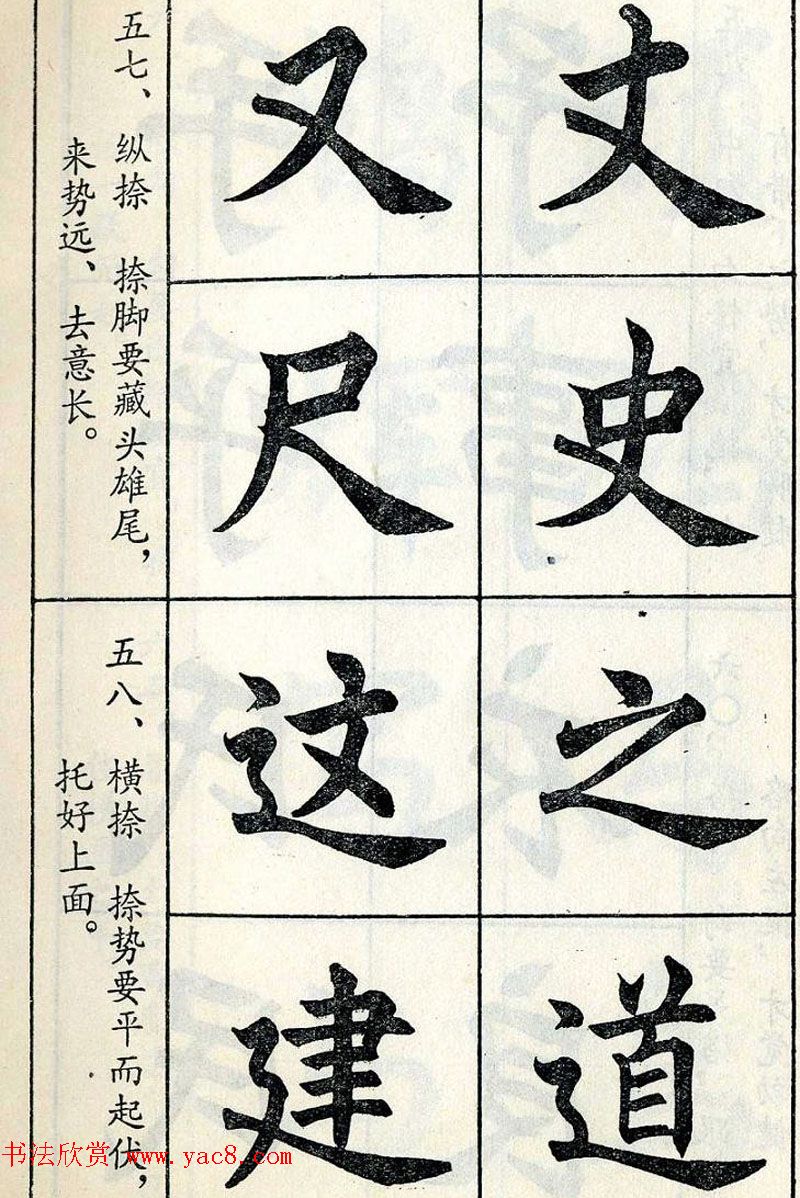 丈史
又尺
五七、纵捺 捺脚要藏头雄尾，
来势远、去意长。
之道
这建
五八、横捺 捺势要平而起伏，
托好上面。
书法欣赏 www.yac8.com